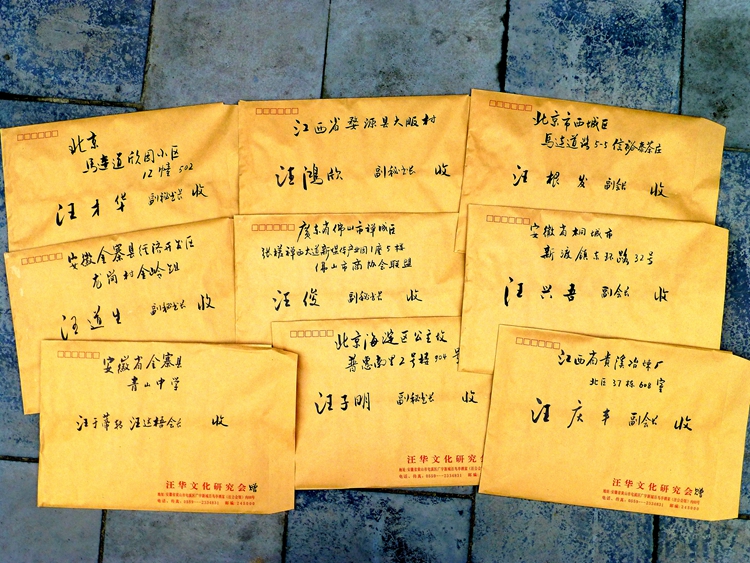 北京
馬連道欣园小区
12幢 502
汪才华 副秘书长 收
江西省婺源县大畈村
汪鴻欣 副秘书长 收
北京市西城区
馬连道路5-5
汪根发 副会长 收
安徽金寨县经济开发区
龙岗村金岭组
汪道生 副秘书长 收
廣东省佛山市禅城区
佛山市商协会联盟
汪俊 副秘书长 收
安徽省桐城市
新渡镇东环路32号
汪兴吾 副会长 收
安徽省金寨县
青山中学
汪于萍转 汪达梧会长 收
北京海淀区公主坟
普惠南里2号楼904号
汪子明 副秘书长 收
江西省贵溪冶炼厂
北区37栋608室
汪庆丰 副会长 收
汪华文化研究会 赠
汪华文化研究会
汪华文化研究会 赠